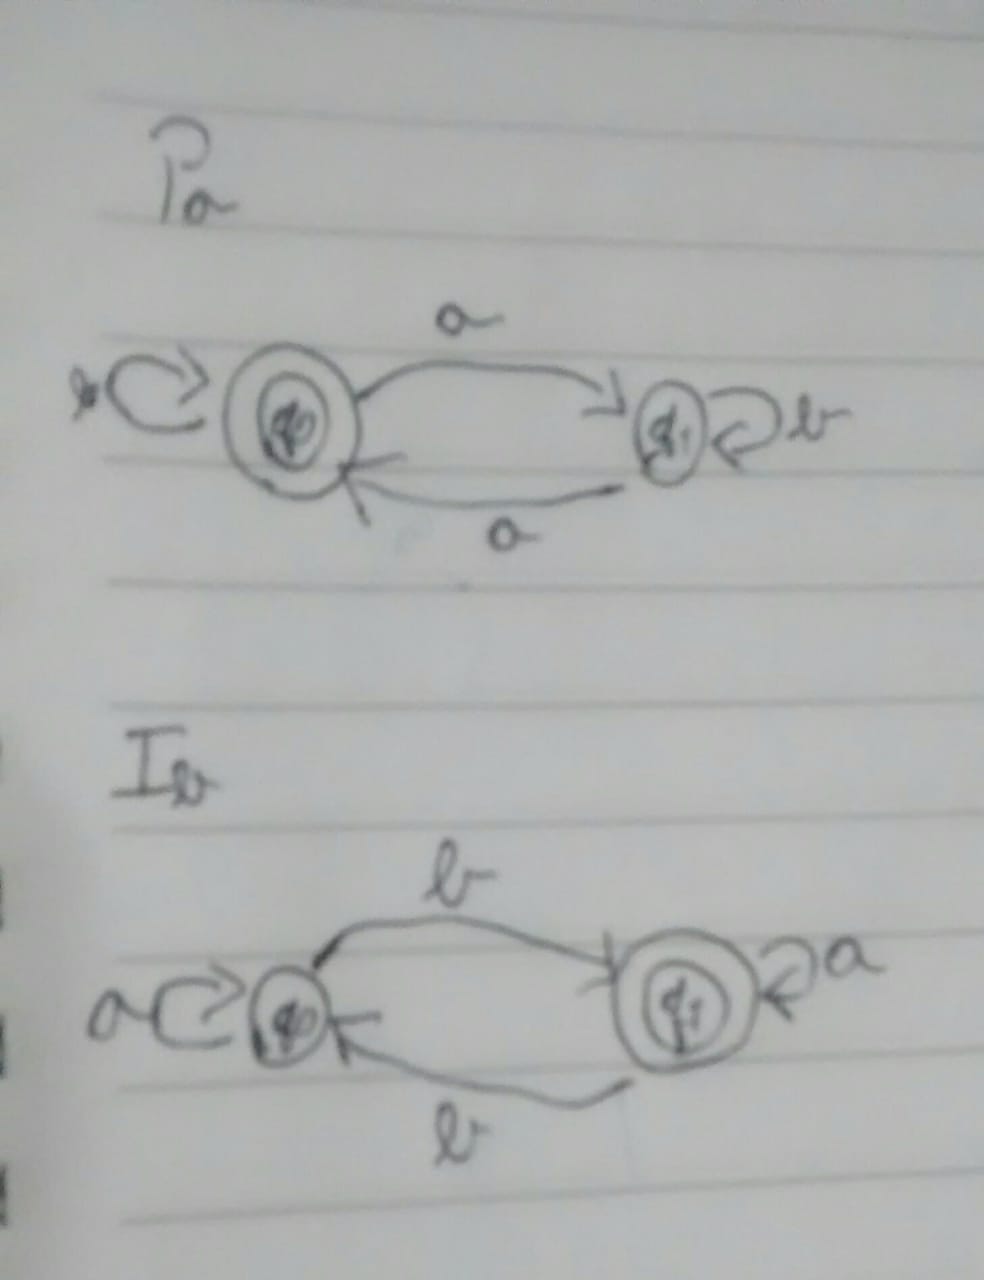 Pa
a
b q0 q1 b
a
Ib
b
a q0 q1 a
b